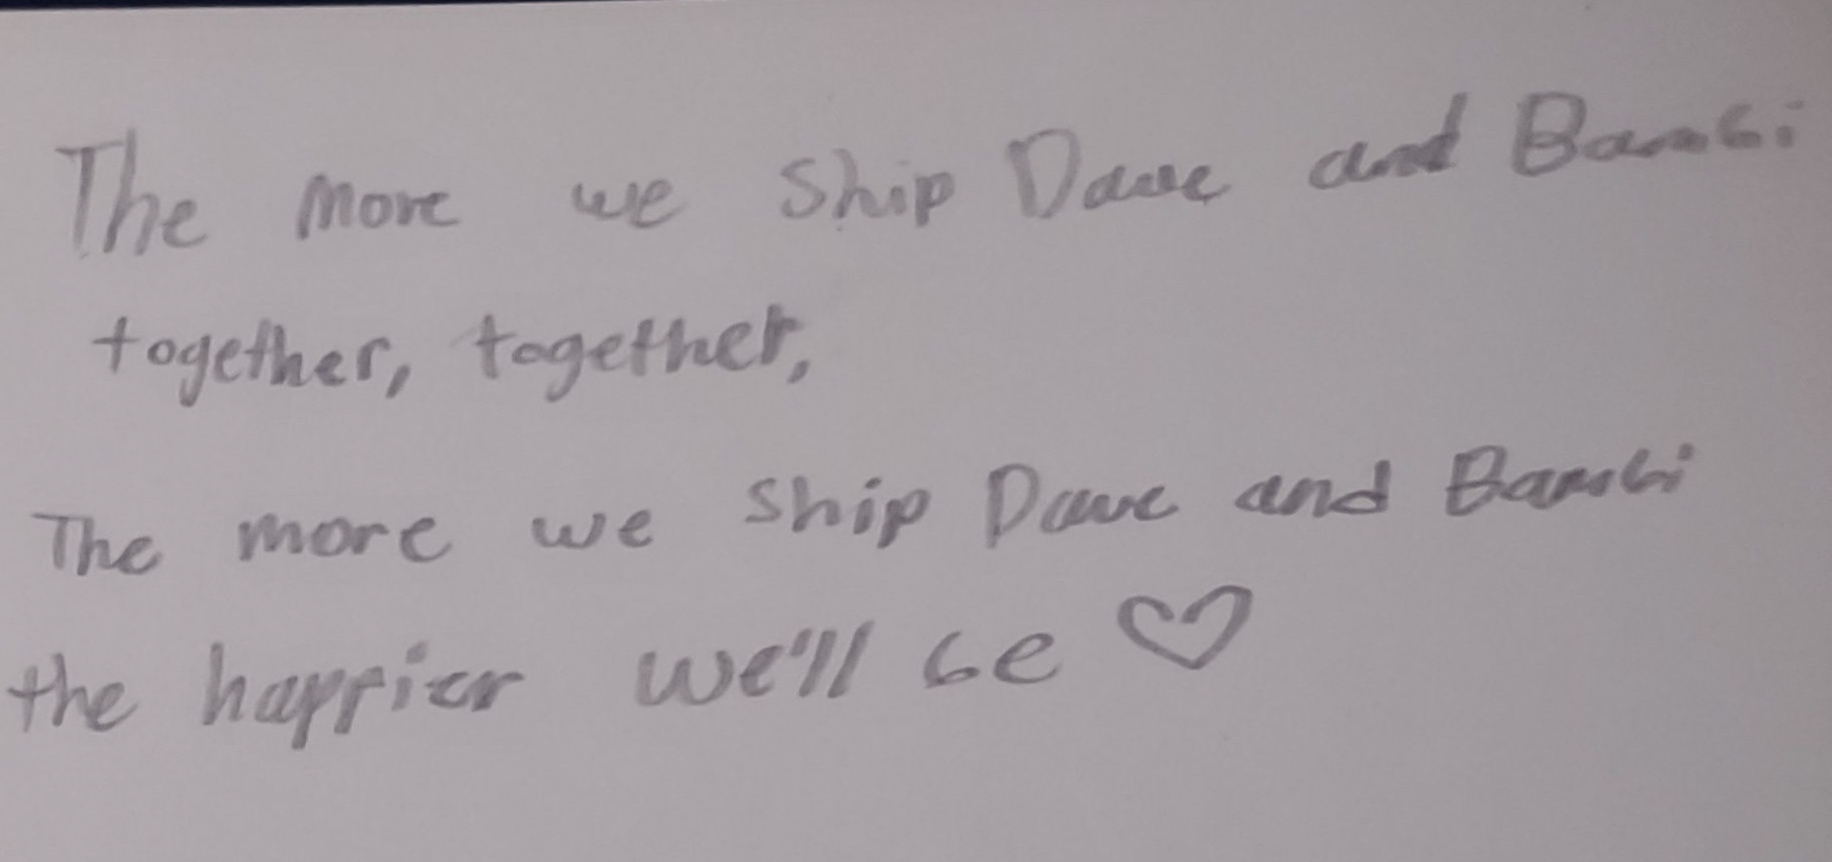 The more we ship Dave and Bambi
together, together,
The more we ship Dave and Bambi
the happier we'll be ♡